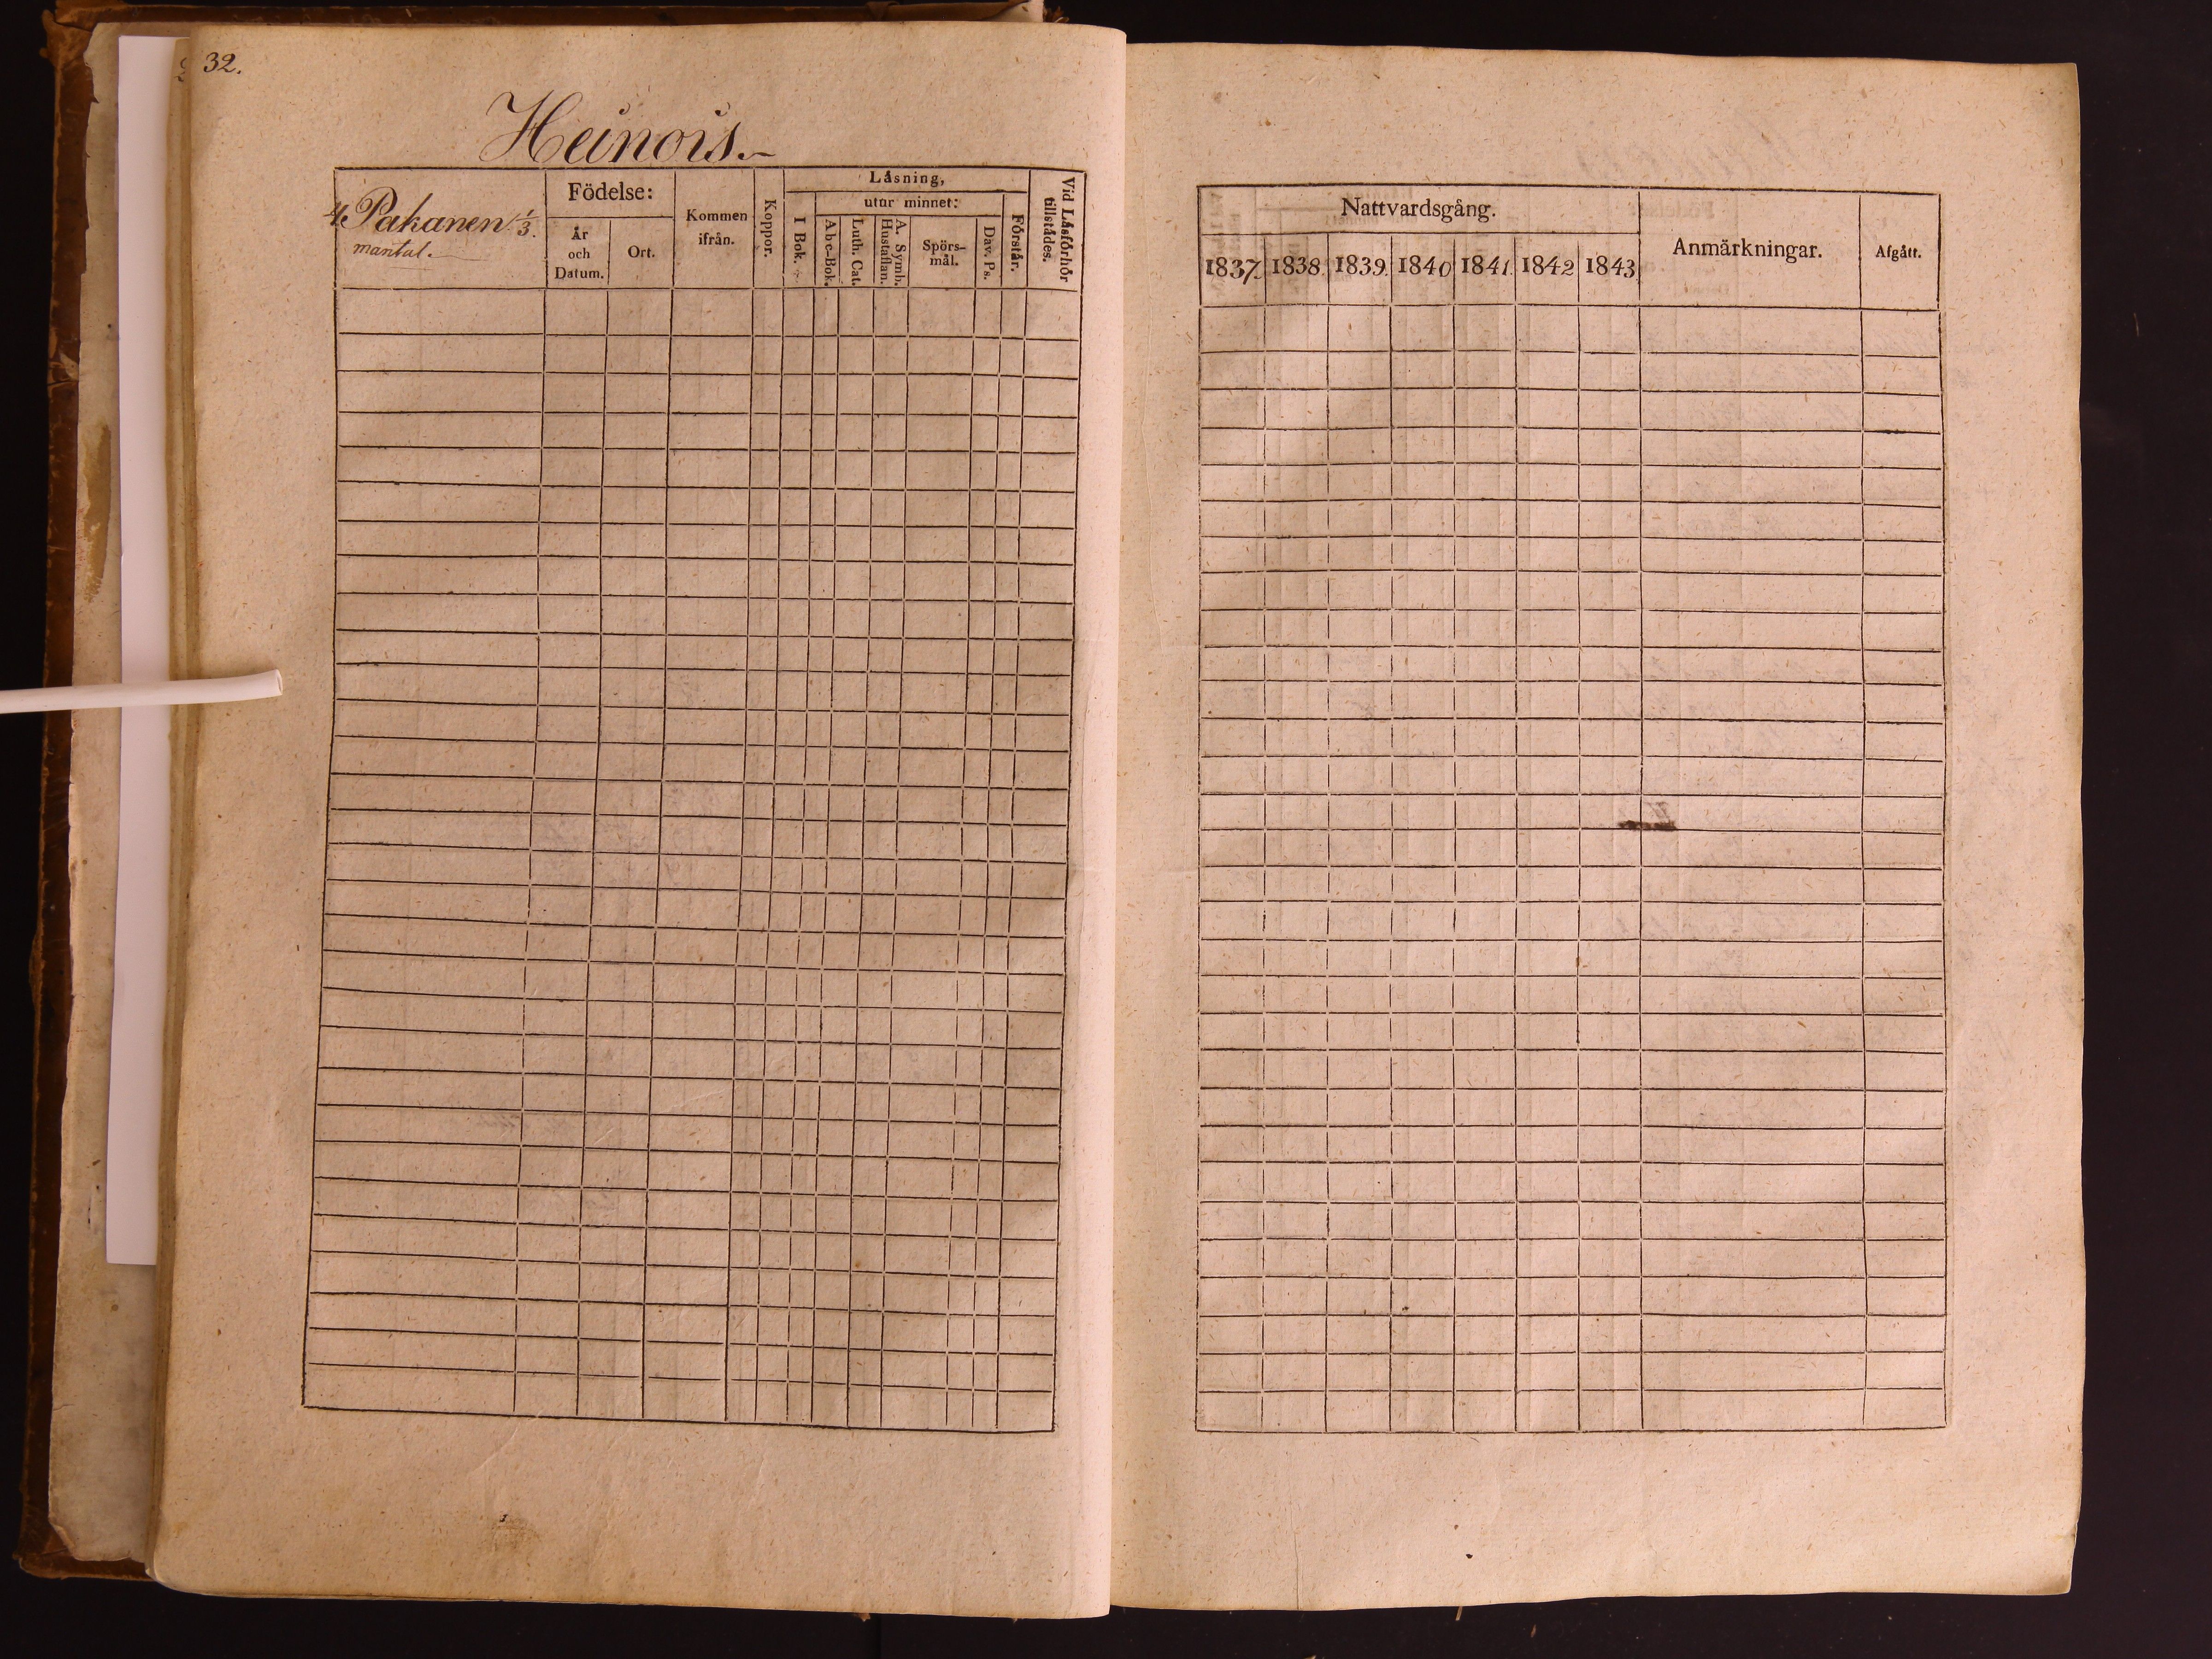 32.
Heinois.
4. Pakanen 1/3.
mantal.
Födelse:
År
och
Datum.
Ort.
Kommen
ifrån.
Koppor.
Låsning,
utur minnet:
I Bok.
Abc-Bok.
Luth. Cat.
A. Symb.
Hustaflan.
Spörs-
mål.
Dav. Ps.
Förstår.
Vid Låsförhör
tillstådes.
Nattvardsgång.
1837. 1838. 1839. 1840 1841. 1842 1843.
Anmärkningar.
Afgått.